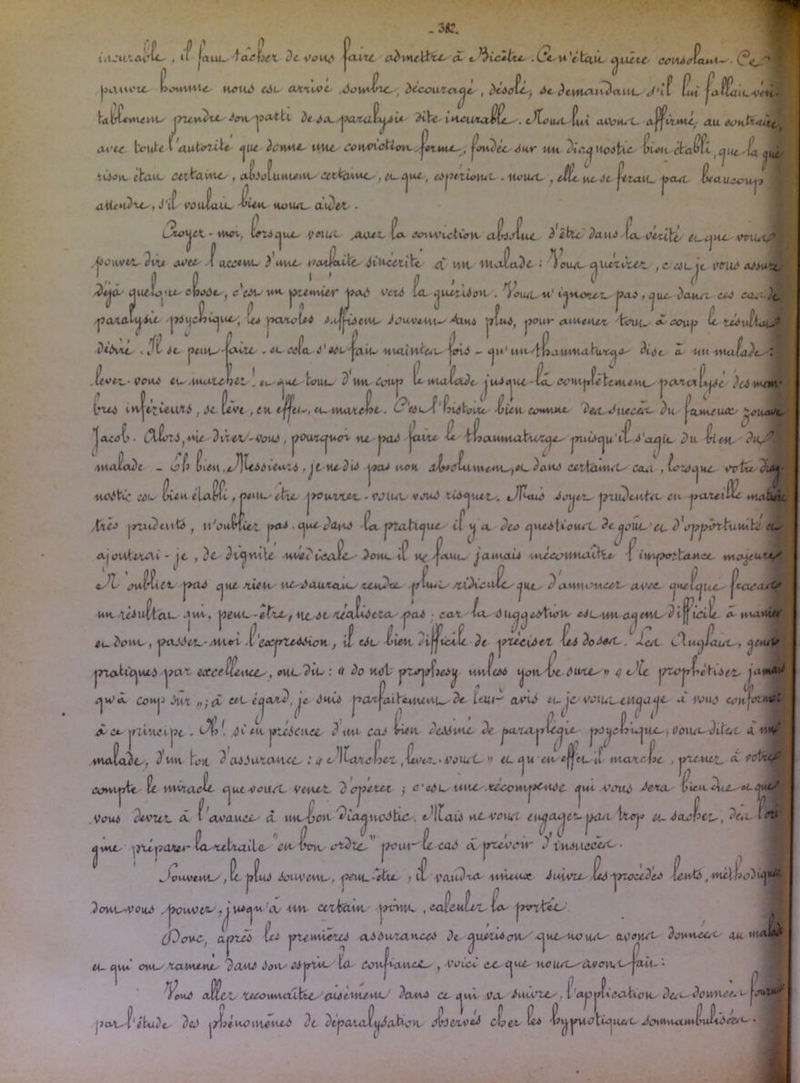 - 382.
incurable, il faut tâcher de vous faire admettre à Bicêtre. Ce n'était guère consolant. Ce
pauvre homme nous est arrivé sombre, découragé, désolé, se demandant s'il lui fallait véri-
tablement prendre son parti de sa paralysie dite incurable. Nous lui avons affirmé, au contraire,
avec toute l'autorité que donne une conviction ferme, fondée sur un diagnostic bien établi, que la gué-
rison était certaine, absolument certaine, et que, espérions-nous, elle ne se ferait pas beaucoup
attendre, s'il voulait bien nous aider.
Croyez-moi, lorsque vous avez la conviction absolue d'être dans la vérité et que vous
pouvez dire avec l'accent d'une parfaite sincérité à un malade: Vous guérirez, c'est, je vous assure,
déjà quelque chose, c'est un premier pas vers la guérison. Vous n'ignorez pas, que dans ces cas de
paralysie psychique, les paroles suffisent souvent sans plus, pour amener tout à coup le résultat
désiré. Il se peut faire, et cela s'est fait maintes fois - qu'un thaumaturge dise à un malade:
levez-vous et marchez! et que tout d'un coup le malade jusque-là complètement paralysé des mem-
bres inférieurs, se lève, en effet, et marche. C'est l'histoire bien connue des succès du fameux zouave
Jacob. Alors, me direz-vous, pourquoi ne pas faire le thaumaturge puisqu'il s'agit du bien du
malade - Eh bien, Messieurs, je ne dis pas non absolument, et dans certains cas, lorsque votre diag-
nostic est bien établi, peut être pourrez-vous vous risquer. Mais soyez prudents en pareille matière
très prudents, n'oubliez pas, que dans la pratique il y a des questions de goût et d'opportunité et
ajouterai-je, de dignité médicale dont il ne faut jamais méconnaître l'importance majeure.
N'oubliez pas que rien ne saurait rendre plus ridicule que d'annoncer avec quelque fracas
un résultat qui, peut-être, ne se réalisera pas: car la suggestion est un agent difficile à manier
et dont, passez-moi l'expression, il est bien difficile de préciser les doses. Les Anglais, gens
pratiques par excellence, ont dit: « Do not prophesy unless you be sure » « Ne prophétisez jamais
qu'à coup sûr »; à cet égard, je suis parfaitement de leur avis et je vous engage à vous conformer
à ce principe. Oh! si en présence d'un cas bien dessiné de paraplégie psychique, vous dites à un
malade, d'un ton d'assurance: « Marchez, levez-vous » et qu'en effet il marche, prenez à votre
compte le miracle que vous venez d'opérer; c'est une récompense qui vous sera bien due et que
vous devrez à l'avance à un bon diagnostic. Mais ne vous engagez pas trop et sachez, dès lors
préparer la retraite "en bon ordre" pour le cas à prévoir d'insuccès.
Souvent, le plus souvent, peut-être, il vaudra mieux suivre les procédés lents, méthodiques
dont vous pouvez, jusqu'à un certain point, calculer la portée.
Donc, après les premières assurances de guérison que nous avons données au malade
et qui ont ramené dans son esprit la confiance, voici ce que nous avons fait:
Vous allez reconnaître aisément dans ce qui va suivre, l'application des données fournies
par l'étude des phénomènes de déparalysation observés chez les hypnotiques somnambulisées.